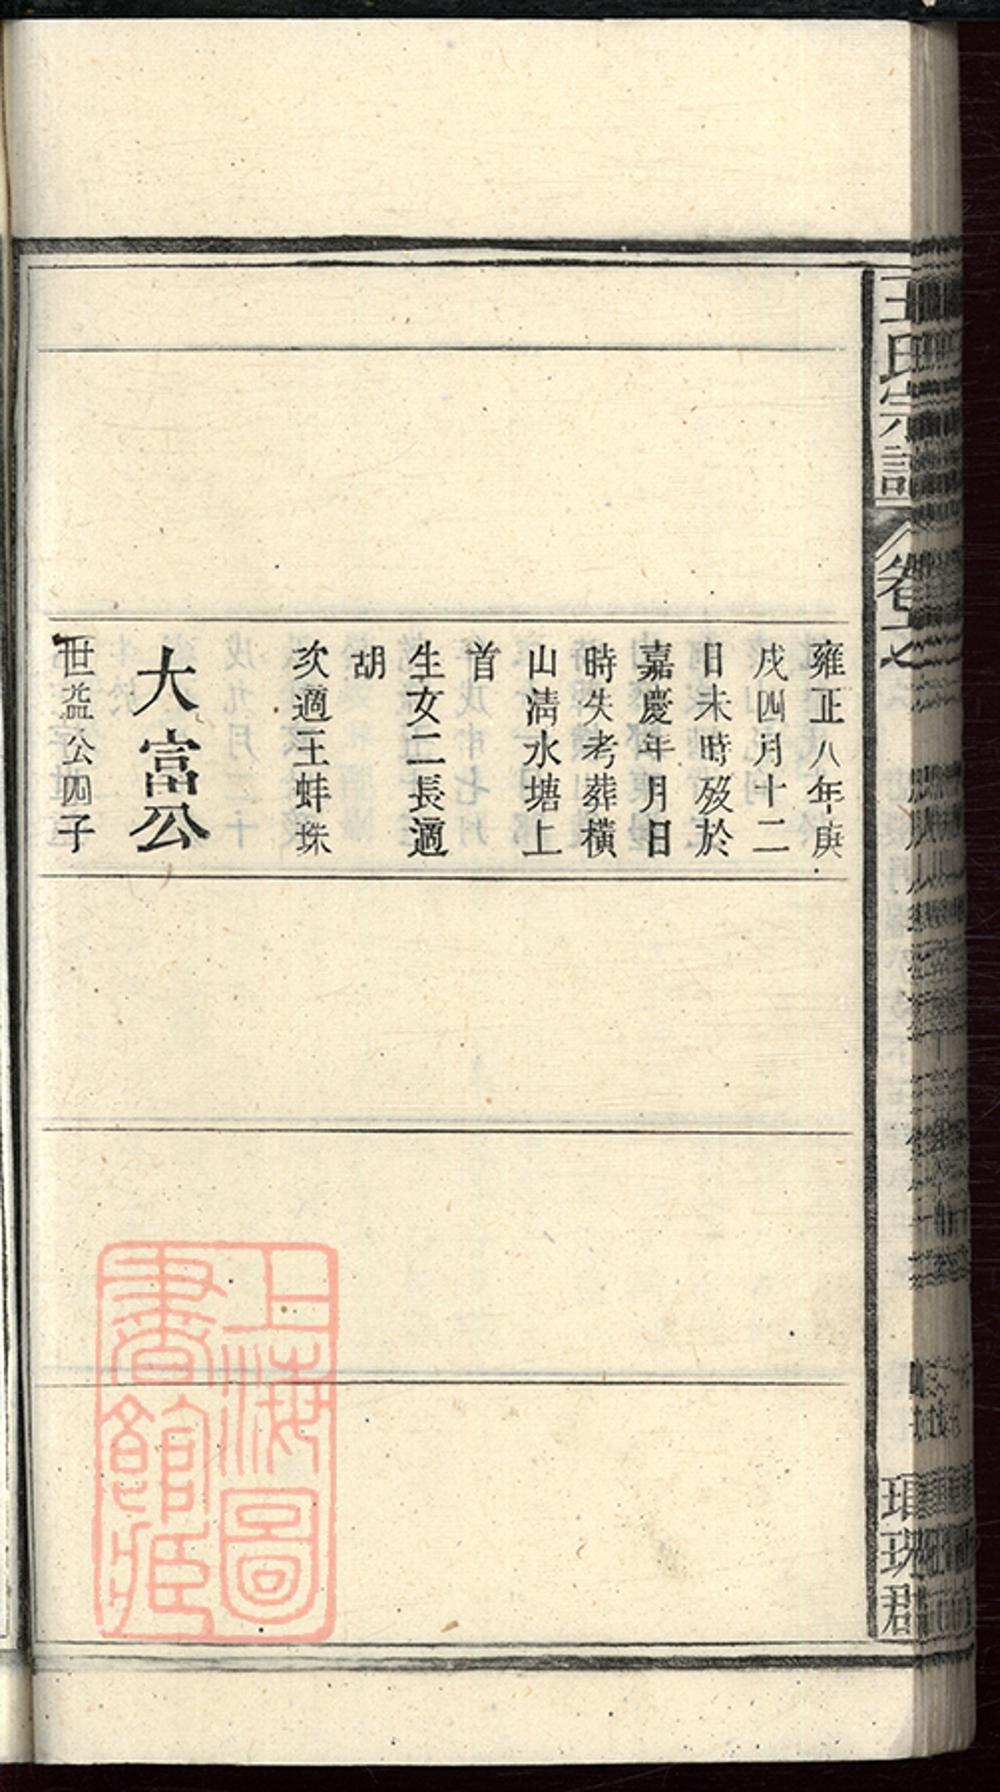 王氏宗譜
卷之
雍正八年庚
戌四月十二
日未時歿於
嘉慶年月日
時失考葬橫
山淸水塘上
首
生女二長適
胡
次適王蚌珠
大富公
世益公四子
上海圖
書館藏